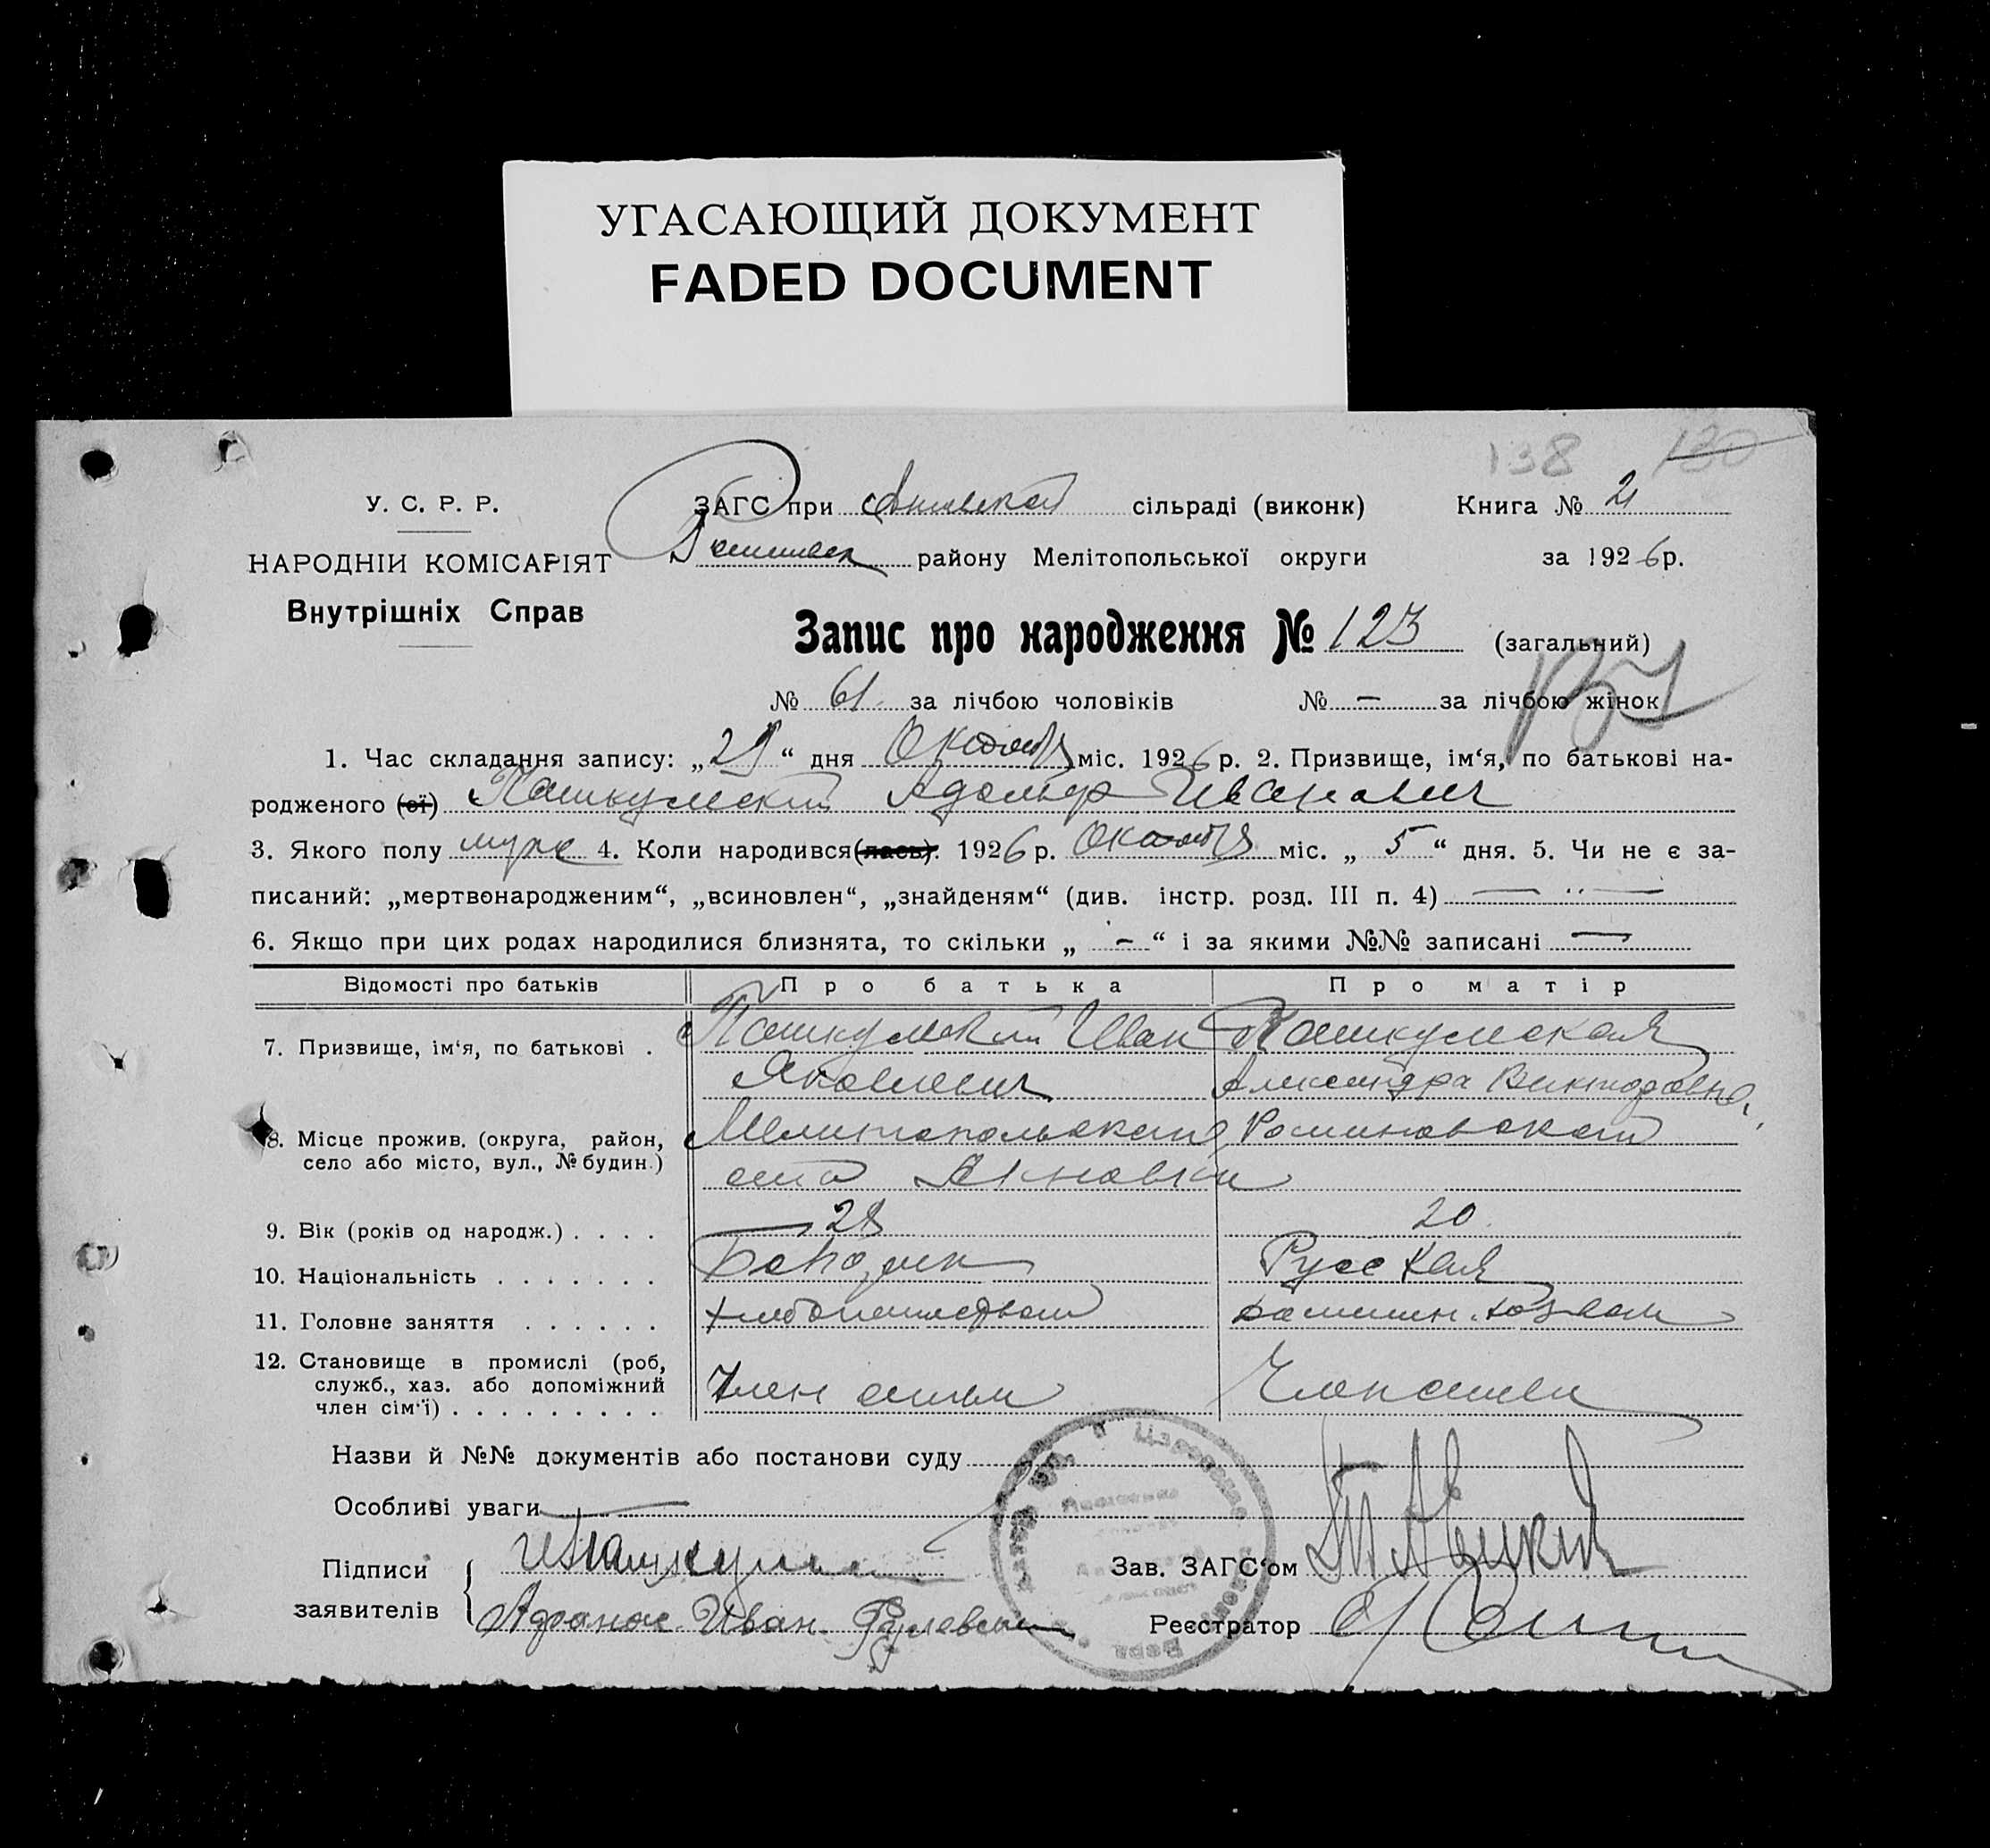 УГАСАЮЩИЙ ДОКУМЕНТ
FADED DOCUMENT
138 130
У. С. Р. Р.
НАРОДНІИ КОМІСАРІЯТ
Внутрішніх Справ
ЗАГС при сільраді (виконк) Книга № 2
району Мелітопольської округи за 1926 р.
Запис про народження № 123 (загальний)
№ 61 за лічбою чоловіків № — за лічбою жінок
1. Час складання запису: „29“ дня Октября міс. 1926 р. 2. Призвище, ім‘я, по батькові на-
родженого (ої) Пашкульский Адольф Иванович
3. Якого полу муж 4. Коли народився (лась). 1926 р. Октября міс. „ 5 “ дня. 5. Чи не є за-
писаний: „мертвонародженим“, „всиновлен“, „знайденям“ (див. інстр. розд. III п. 4) — „ —
6. Якщо при цих родах народилися близнята, то скільки „ – “ і за якими №№ записані —
Відомості про батьків Про батька Про матір
7. Призвище, ім‘я, по батькові . Пашкульский Иван Пашкульская
Яковлевич Александра Викторовна
8. Місце прожив. (округа, район, село або місто, вул., № будин.) Мелитопольский
Акновка
9. Вік (років од народж.) . . . . 28 20
10. Національність . . . . . . . Русская
11. Головне заняття . . . . . . хлебопашество
12. Становище в промислі (роб, служб., хаз. або допоміжний член сім‘ї) . . . . . . . . . Член семьи Член семьи
Назви й №№ документів або постанови суду
Особливі уваги —
Підписи
заявителів
Иван
Зав. ЗАГС‘ом
Реєстратор